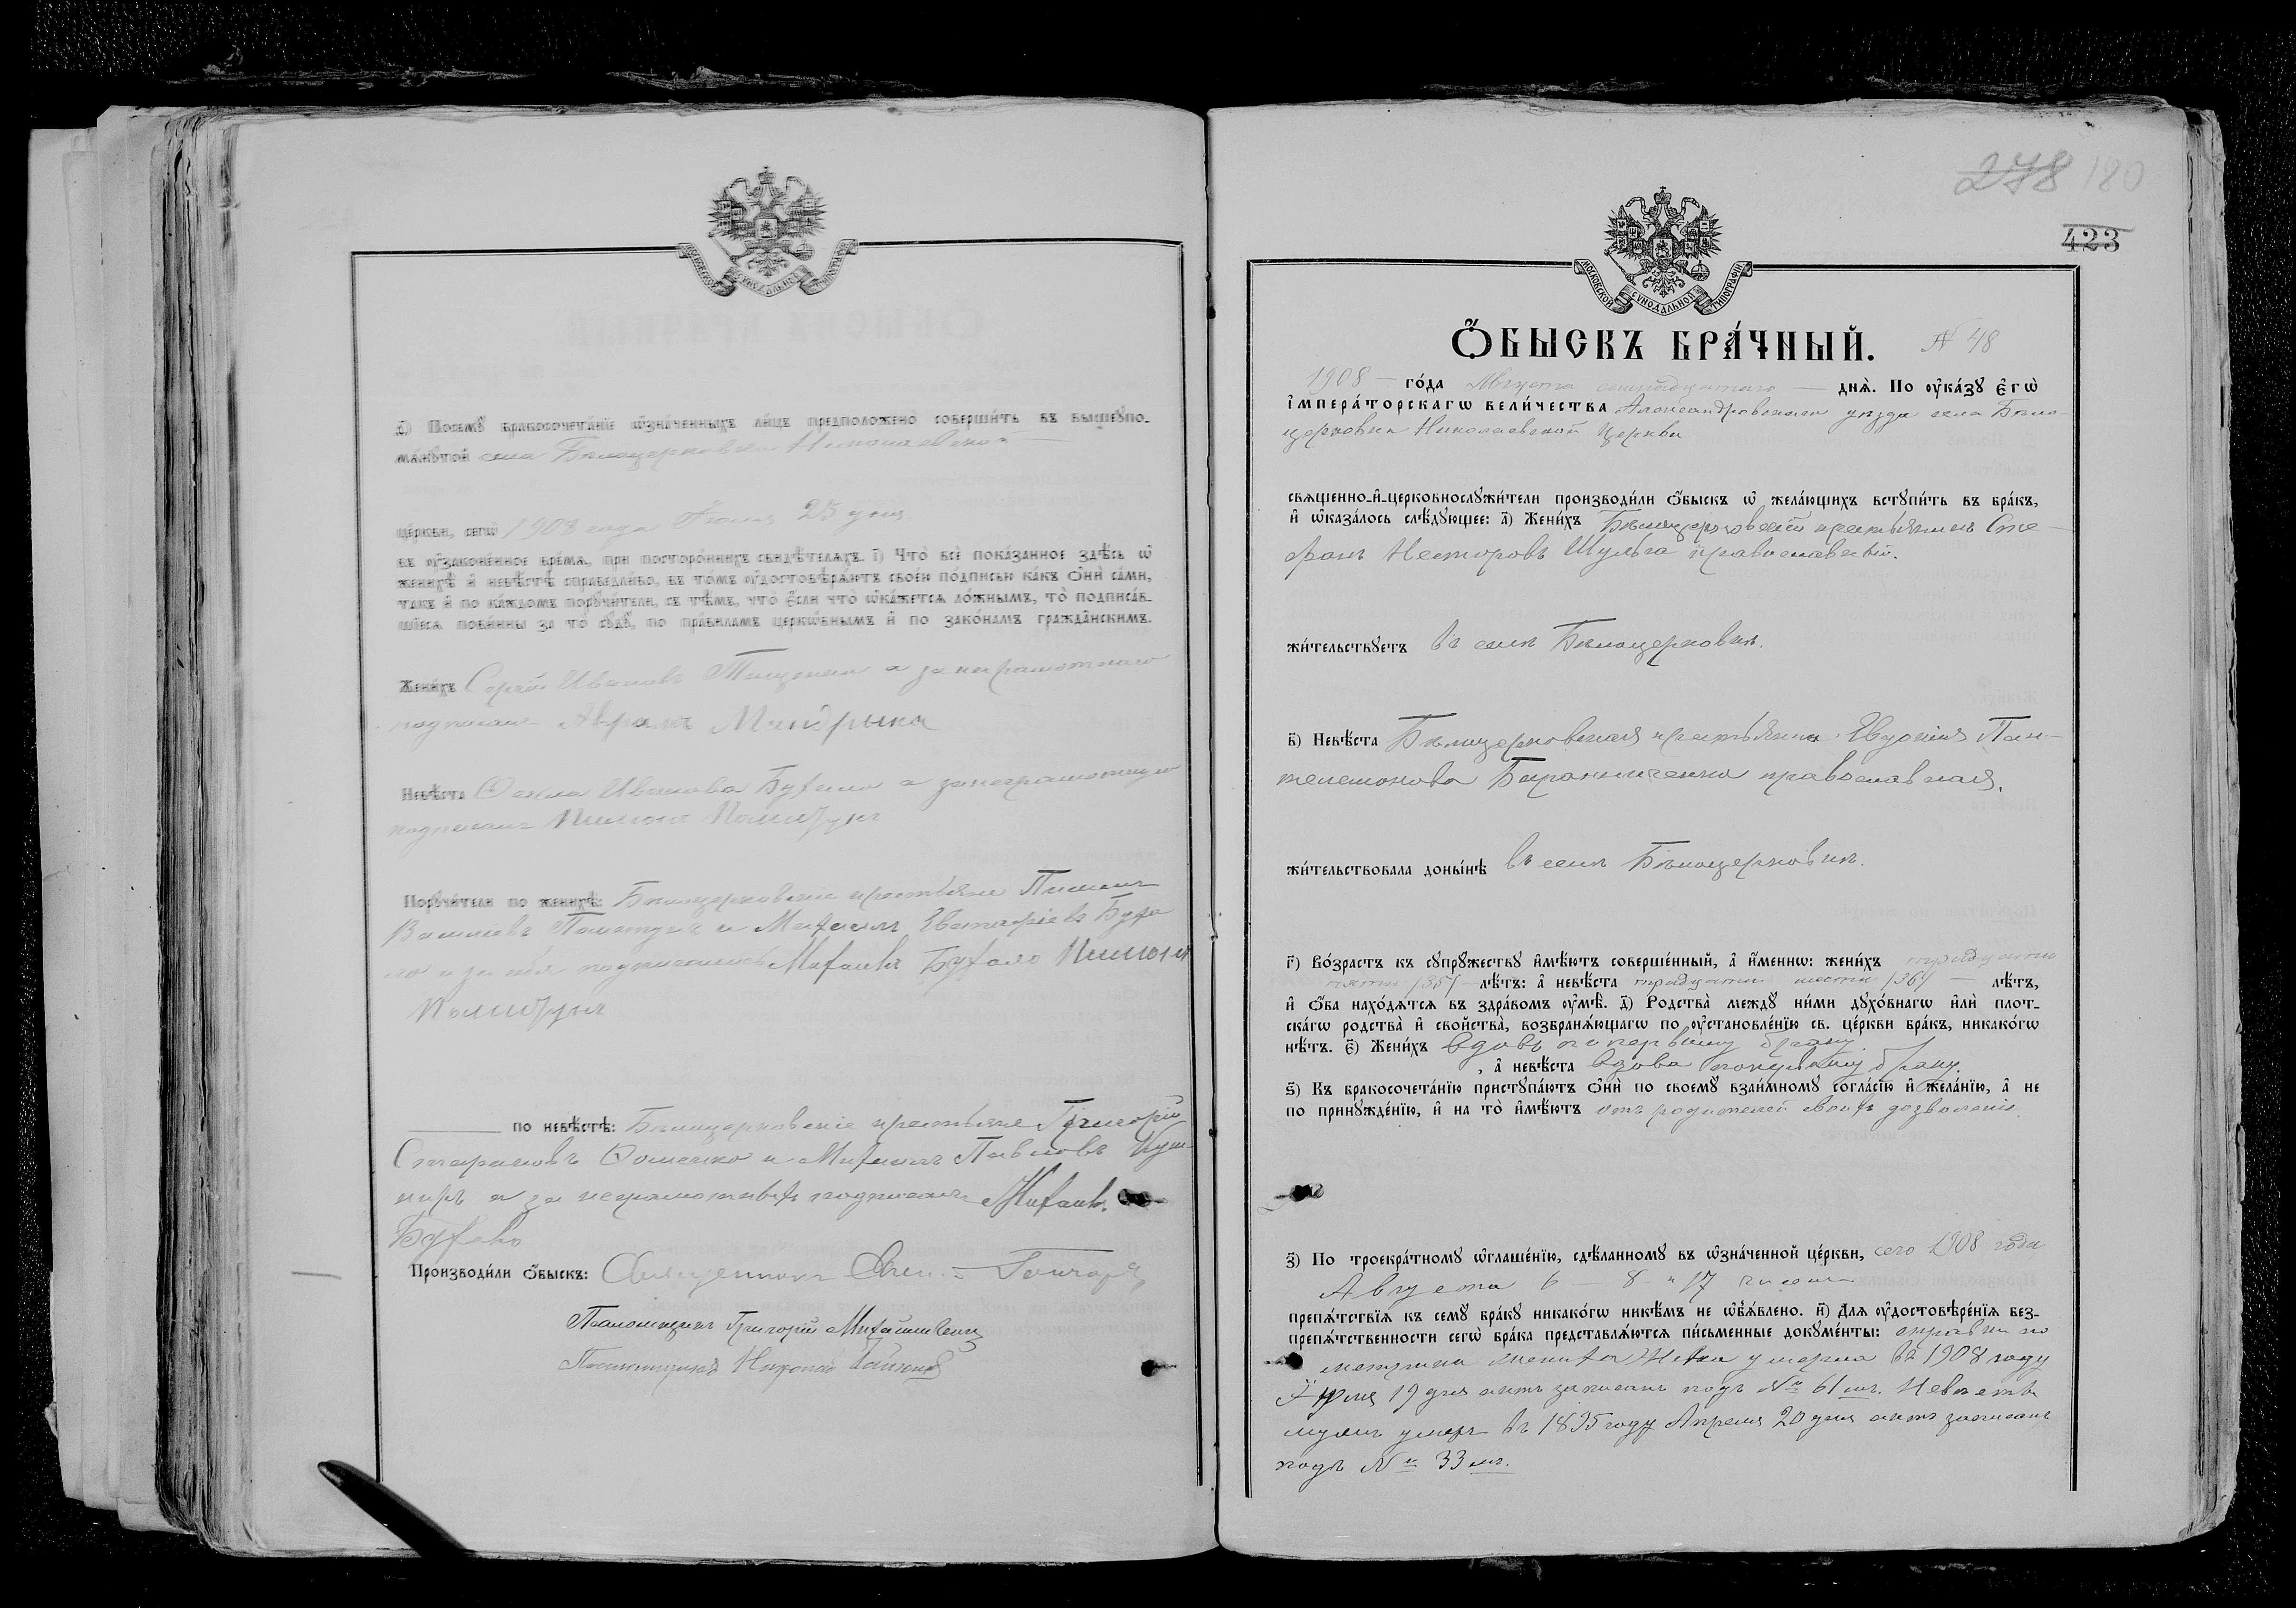 ѳ҃) Посемꙋ̀ бракосочета́нїе ѡ҆зна́ченныхъ ли́цъ предположено̀ соверши́ть въ вышеꙋпо-
мѧ́нꙋтой села Бѣлоцерковки Николаевской
це́ркви, сегѡ̀ 1908 года 25 дня
въ ᲂу҆зако́ненное вре́мѧ, при посторо́ннихъ свидѣ́телѧхъ. і҃) Что̀ всѐ пока́занное здѣ́сь ѡ҆
женихѣ̀ и҆ невѣ́стѣ справедли́во, въ то́мъ ᲂу҆достовѣрѧ́ютъ свое́ю по́дписью ка́къ ѻ҆нѝ са́ми,
та́къ и҆ по ка́ждомъ порꙋчи́тели, съ тѣ́мъ, что̀ є҆́сли что̀ ѡ҆ка́жетсѧ ло́жнымъ, то̀ подписа́в-
шїесѧ пови́нны за то̀ сꙋдꙋ̀, по пра́виламъ церкѡ́внымъ и҆ по зако́намъ гражда́нскимъ.
Жени́хъ Сергѣй Ивановъ а за неграмотнаго
подписался Аврамъ Мандрыка
Невѣ́ста Ѳекла Иванова Буhало а за неграмотную
подписался Пимонъ
Порꙋчи́тели по женихѣ̀: Бѣлоцерковскіе крестьяне Пименъ
Васильевъ и Михаилъ Евстафіевъ Буха-
ло и за себя подписались Михаилъ Бухало Пимонъ
по невѣ́стѣ: Бѣлоцерковскіе крестьяне Григорій
Ѳоменко и Михаилъ Павловъ Куш-
ниръ а за неграмотныхъ подписался Михаилъ
Бухало
Производи́ли ѻ҆́быскъ: Священникъ Гончаръ
Псаломщикъ Григорій
Псаломщикъ
278 180
423
МОСКОВСКОЙ СѴНОДАЛЬНОЙ ТИПОГРАФІИ
Ѻ҆́БЫСКЪ БРА́ЧНЫЙ. № 48
1908 го́да Августа семнадцатаго днѧ̀. По ᲂу҆ка́зꙋ є҆гѡ̀
і҆мпера́торскагѡ вели́чества Александровскаго уѣзда села Бѣло-
церковки Николаевской церкви
свѧще́нно-и҆-церковнослꙋжи́тели производи́ли ѻ҆́быскъ ѡ҆ жела́ющихъ встꙋпи́ть въ бра́къ,
и҆ ѡ҆каза́лось слѣ́дꙋющее: а҃) Жени́хъ Бѣлоцерковскій крестьянинъ Сте-
фанъ Несторовъ Шульга православный.
жи́тельствꙋетъ въ селѣ Бѣлоцерковкѣ.
в҃) Невѣ́ста Бѣлоцерковская крестьянка Евдокія Пан-
телемонова православная.
жи́тельствовала доны́нѣ въ селѣ Бѣлоцерковкѣ.
г҃) Во́зрастъ къ сꙋпрꙋ́жествꙋ и҆мѣ́ютъ соверше́нный, а҆ и҆́меннѡ: жени́хъ тридцати
пяти /35/ лѣ́тъ: а҆ невѣ́ста тридцати шести /36/ лѣ́тъ,
и҆ ѻ҆́ба нахо́дѧтсѧ въ здра́вомъ ᲂу҆мѣ̀. д҃) Родства̀ между ни́ми дꙋхо́внагѡ и҆лѝ пло́т-
скагѡ родства̀ и҆ сво́йства̀, возбранѧ́ющагѡ по ᲂу҆становле́нїю св. це́ркви бра́къ, никако́гѡ
нѣ́тъ. є҃) Жени́хъ вдовъ по первому браку
, а҆ невѣ́ста вдова по первому браку.
ѕ҃) Къ бракосочета́нїю пристꙋпа́ютъ ѻ҆нѝ по своемꙋ̀ взаи́мномꙋ согла́сїю и҆ жела́нїю, а҆ не
по принꙋжде́нїю, и҆ на то̀ и҆мѣ́ютъ отъ родителей своихъ дозволеніе.
з҃) По троекра́тномꙋ ѡ҆глаше́нїю, сдѣ́ланномꙋ въ ѡ҆зна́ченной це́ркви, сего 1908 года
Августа 6 — 8 и 17 чиселъ
препѧ́тствїѧ къ семꙋ̀ бра́кꙋ никако́гѡ никѣ́мъ не ѡ҆б̾ѧ́влено. и҃) Длѧ̀ ᲂу҆достовѣре́нїѧ без-
препѧ́тственности сегѡ̀ бра́ка представлѧ́ютсѧ пи́сьменные докꙋме́нты: справки по
метрикѣ жениха жена умерла въ 1908 году
19 дня актъ записанъ подъ № 61 мъ. Невѣсты
мужъ умеръ въ 1895 году Апрѣля 20 дня актъ записанъ
подъ № 33 мъ.